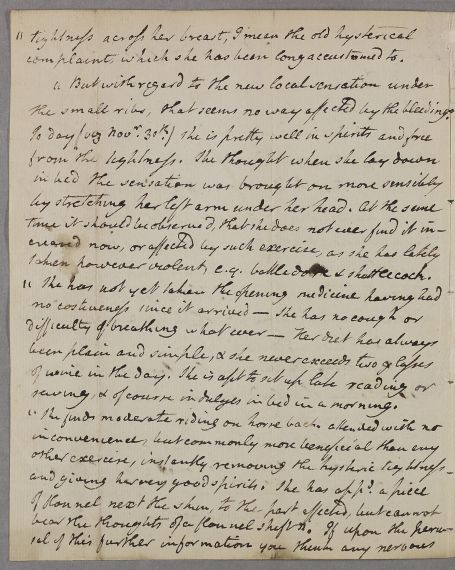 " tightness across her breast, I mean the old hysterical
complaint, which she has been long accustomed to.
" But with regard to the new local sensation under
the small ribs, that seems no way affected by the bleeding.
To day (viz Novr. 30th.) she is pretty well in spirits and free
from the tightness. She thought when she lay down
in bed the sensation was brought on more sensibly
by stretching her left arm under her head. At the same
time it should be observed, that she does not ever find it in-
creased now, or affected by such exercise, as she has lately
taken however violent, e.g. battledore & shuttlecock.
" She has not yet taken the opening medicine having had
no costiveness since it arrived — She has no cough or
difficulty of breathing what ever — Her diet has always
been plain and simple, & she never exceeds two glasses
of wine in the day. She is apt to set up late reading or
sewing, & of course indulges in bed in a morning.
" She finds moderate riding on horse back attended with no
inconvenience, but commonly more beneficial than any
other exercise, instantly removing the hysteric tightness—
and giving her very good spirits. She has appd. a piece
of flannel next the skin, to the part affected, but cannot
bear the thoughts of a flannel shift. If upon the peru-
sal of this further information you think any nervous